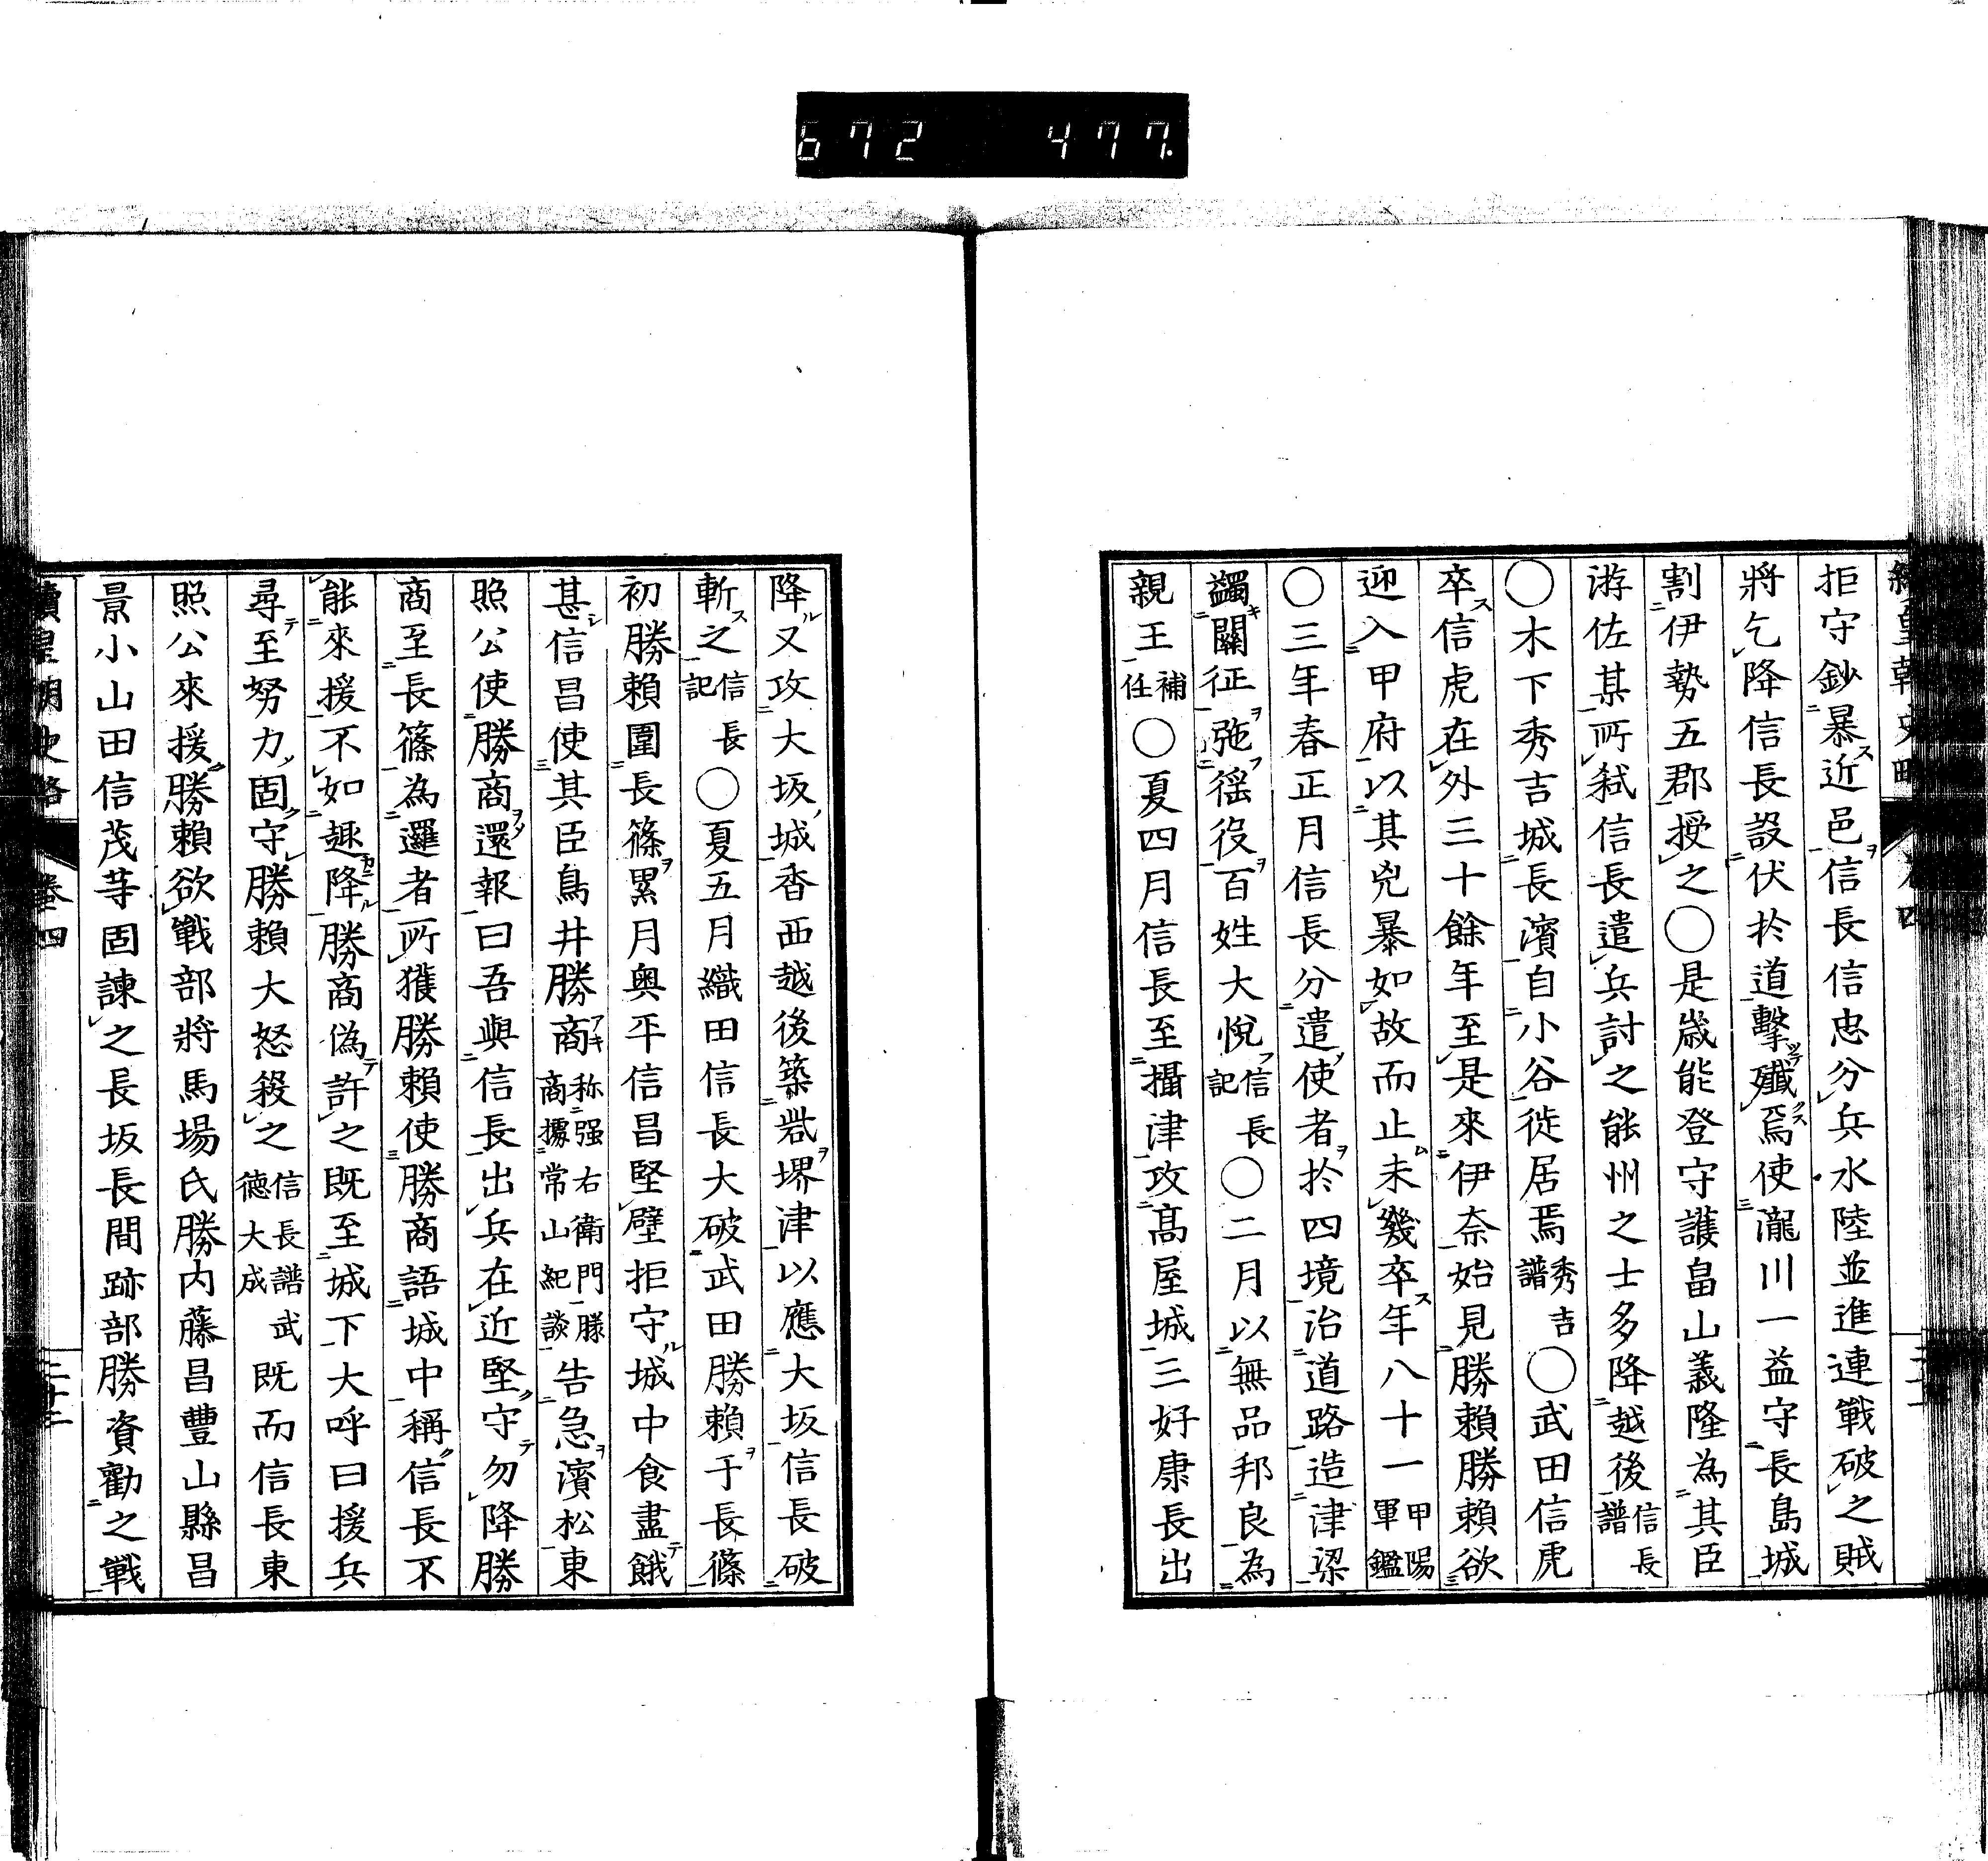 672 477.
拒守鈔暴近邑信長信忠分兵水陸並進連戰破之賊
將乞降信長設伏於道擊殲焉使瀧川一益守長島城
割伊勢五郡授之〇是歲能登守護畠山義隆為其臣
游佐某所弑信長遣兵討之能州之士多降越後信長譜
〇木下秀吉城長濱自小谷徙居焉秀吉譜〇武田信虎
卒信虎在外三十餘年至是來伊奈始見勝賴勝賴欲
迎入甲府以其兇暴如故而止未幾卒年八十一甲陽軍鑑
〇三年春正月信長分遣使者於四境治道路造津梁
蠲關征弛徭役百姓大悅信長記〇二月以無品邦良為
親王補任〇夏四月信長至攝津攻高屋城三好康長出
降又攻大坂城香西越後築砦堺津以應大坂信長破
斬之信長記〇夏五月織田信長大破武田勝賴于長篠
初勝賴圍長篠累月奧平信昌堅壁拒守城中食盡餓
甚信昌使其臣鳥井勝商称强右衛門勝商據常山紀談告急濱松東
照公使勝商還報曰吾與信長出兵在近堅守勿降勝
商至長篠為邏者所獲勝賴使勝商語城中稱信長不
能來援不如趣降勝商偽許之既至城下大呼曰援兵
尋至努力固守勝賴大怒殺之信長譜武德大成既而信長東
照公來援勝賴欲戰部將馬場氏勝內藤昌豐山縣昌
景小山田信茂等固諫之長坂長間跡部勝資勸之戰
續皇朝史略 卷四